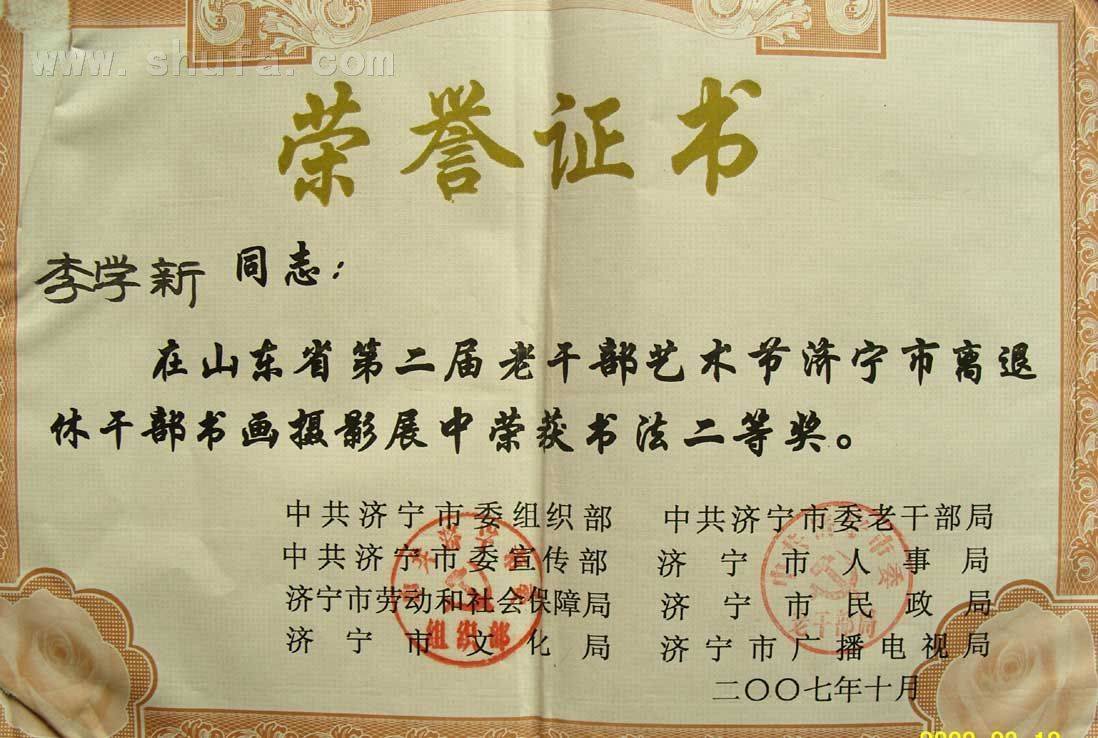 www.shufa.com
荣誉证书
李学新 同志：
在山东省第二届老干部艺术节济宁市离退
休干部书画摄影展中荣获书法二等奖。
中共济宁市委组织部 中共济宁市委老干部局
中共济宁市委宣传部 济宁市人事局
济宁市劳动和社会保障局 济宁市民政局
济宁市文化局 济宁市广播电视局
组织部
老干部局
二〇〇七年十月